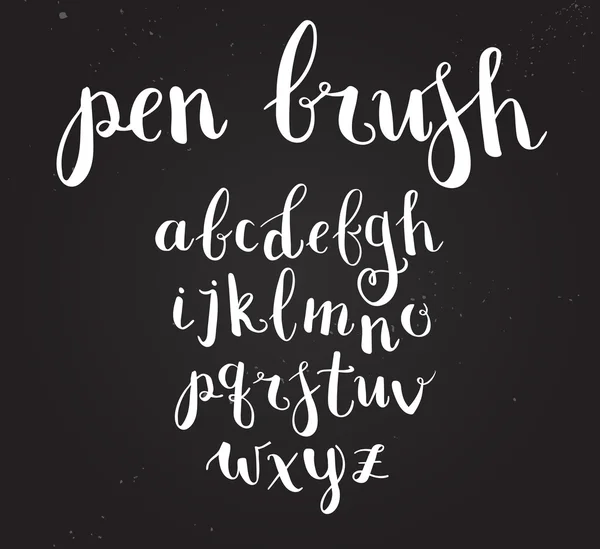 pen brush
abcdefgh
ijklmno
pqrstuv
wxyz